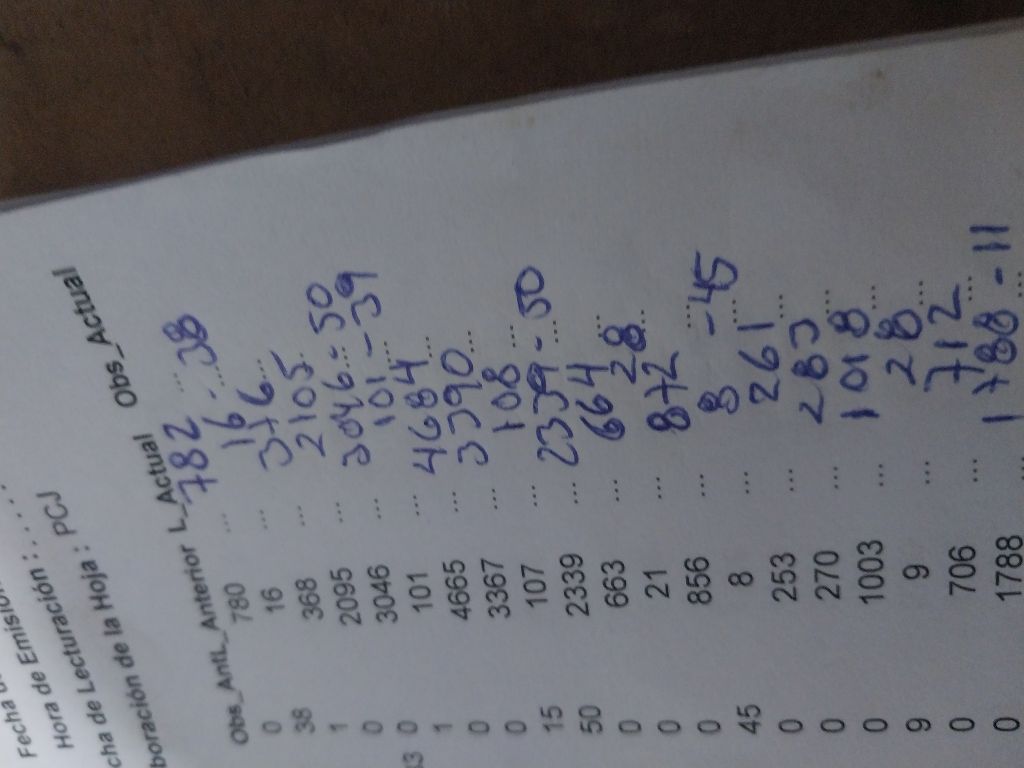 Hora de Emisión : . . . .
cha de Lecturación :
boración de la Hoja : PCJ
Obs_Ant L_Anterior L_Actual Obs_Actual
0 780 ... 782 ...
38 16 ... 16 - 38
1 368 ... 376 ...
0 2095 ... 2105 ...
0 3046 ... 3046 - 50
1 101 ... 101 - 39
0 4665 ... 4684 ...
0 3367 ... 3390 ...
15 107 ... 108 ...
50 2339 ... 2339 - 50
0 663 ... 664 ...
0 21 ... 28 ...
0 856 ... 872 ...
45 8 ... 8 - 45
0 253 ... 261 ...
0 270 ... 283 ...
0 1003 ... 1018 ...
9 9 ... 28 ...
0 706 ... 712 ...
0 1788 ... 1788 - 11